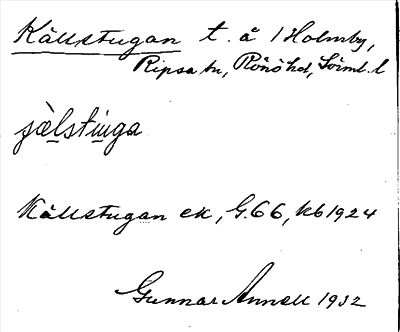 Källstugan t. å 1 Holmby,
Ripsa sn, Rönö hd, Sörml. l
Källstugan ek, G.66, kb 1924
Gunnar Annell 1932